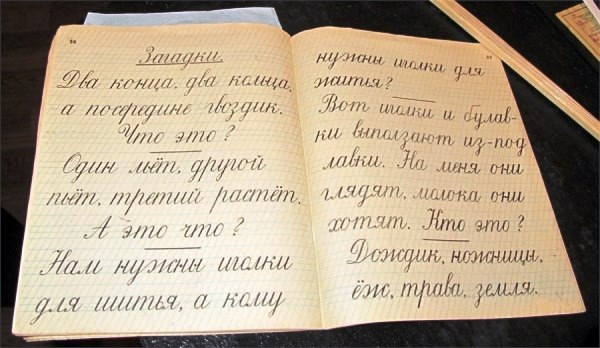 Загадки.
Два конца, два кольца,
а посередине гвоздик.
Что это?
Один льёт, другой
пьёт, третий растёт.
А это что?
Нам нужны иголки
для шитья, а кому
нужны иголки для
житья?
Вот иголки и булав-
ки выползают из-под
лавки. На меня они
глядят, молока они
хотят. Кто это?
Дождик, ножницы,
ёж, трава, земля.